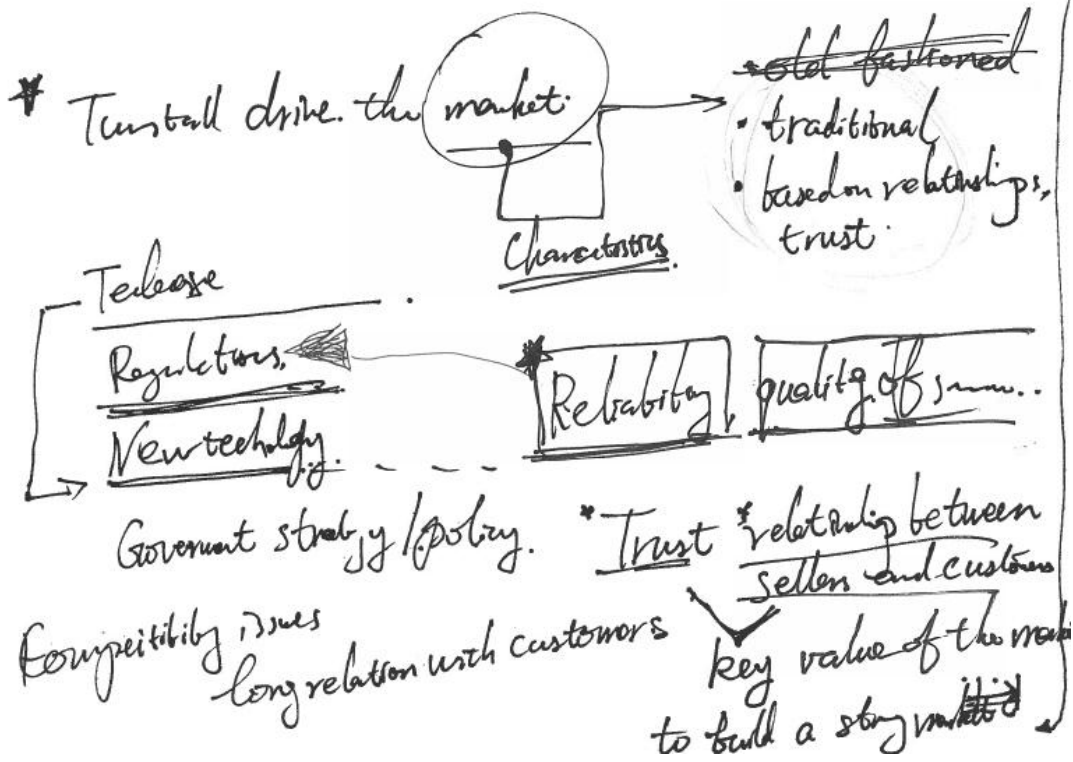 * Tunstall drive. the market.
old fashioned
• traditional
• based on relationships,
trust.
Characteristics.
Regulations,
New technology.
Reliability
quality of
Goverment strategy / policy.
*Trust *relationship between
sellers and customers
Compeitibility issues
long relation with customers
key value of the
to build a strong